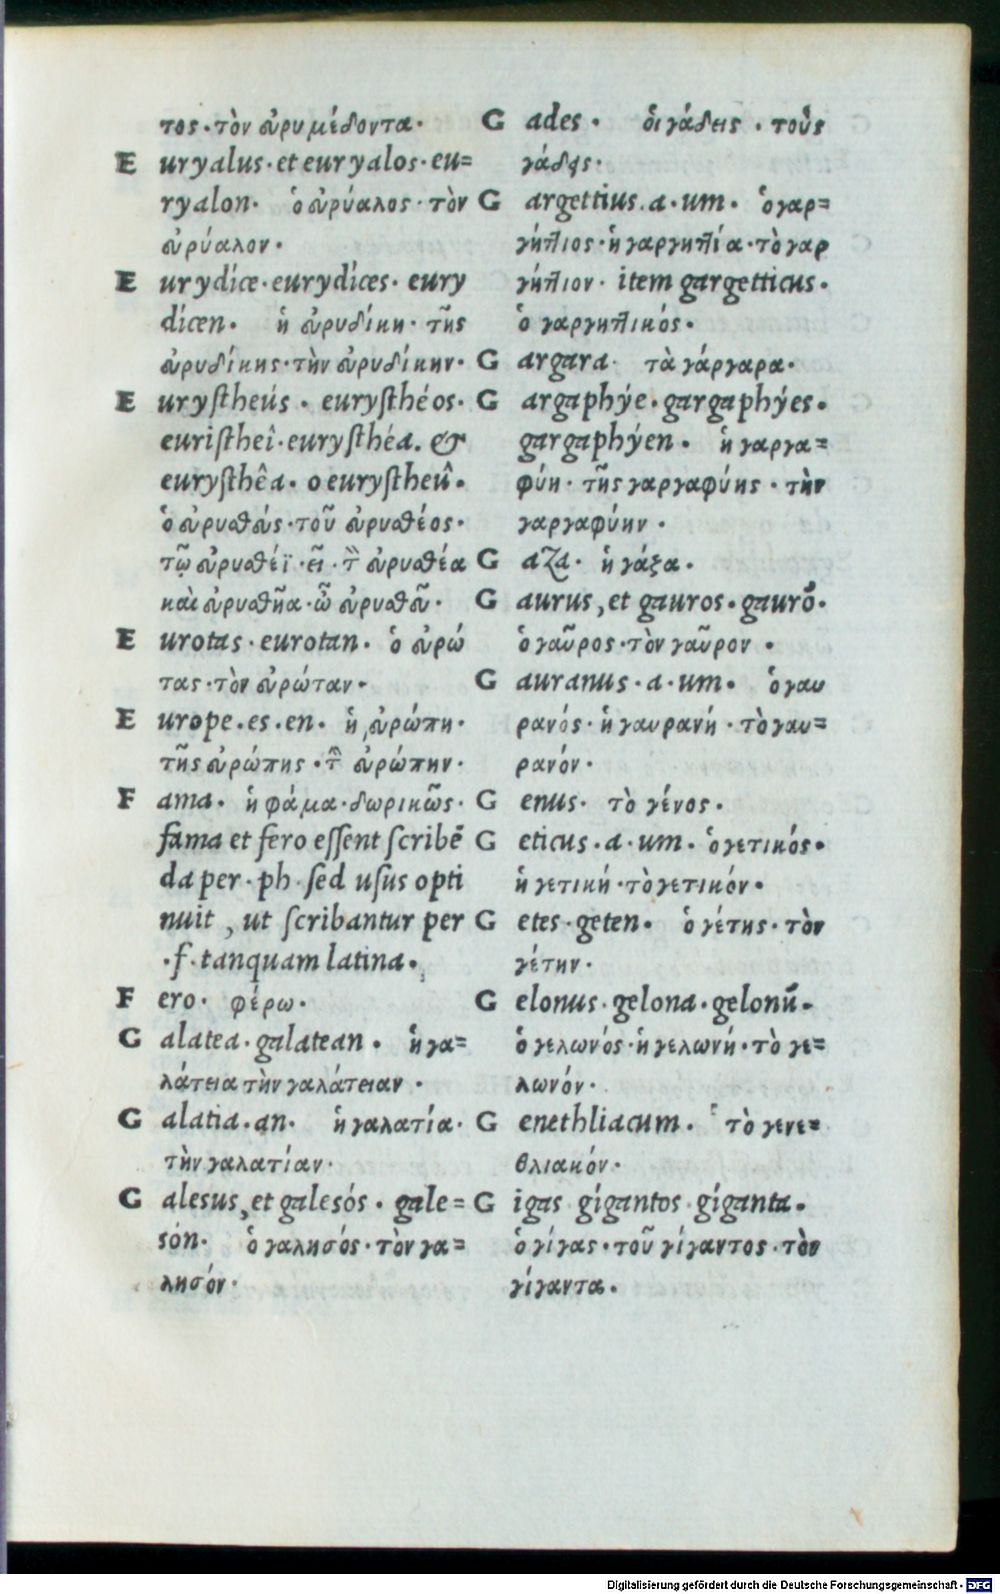 τος·τὸν εὐρυμέδοντα·
E uryalus·et euryalos·eu=
ryalon· ὁ εὐρύαλος·τὸν
εὐρύαλον·
E urydíce·eurydíces·eury
dícen· ἡ εὐρυδίκη·τῆς
εὐρυδίκης·τὴν εὐρυδίκην·
E uryſtheús·euryſthéos·
euriſtheî·euryſthéa.&
euryſthêa·o euryſtheû·
ὁ εὐρυσθεύς·τοῦ εὐρυσθέος·
τῷ εὐρυσθέϊ·εῖ·τ̀ εὐρυσθέα
καὶ εὐρυσθῆα·ὦ εὐρυσθεῦ·
E urotas·eurotan· ὁ εὐρώ
τας·τὸν εὐρώταν·
E urope.es.en· ἡ εὐρώπη·
τῆς εὐρώπης·τ̀ εὐρώπην·
F ama· ἡ φάμα·δωρικῶς·
fama et fero eſſent ſcribē
da per·ph·ſed uſus opti
nuit, ut ſcribantur per
·f·tanquam latina·
F ero· φέρω·
G alatea·galatean· ἡ γα=
λάτεια τὴν γαλάτειαν·
G alatia.an· ἡ γαλατία·
τὴν γαλατίαν·
G alesus, et galesós·gale=
són· ὁ γαλησός·τὸν γα=
λησόν·
G ades· οἱ γάδεις·τοὺς
γάδεις·
G argettius.a·um· ὁ γαρ=
γήττιος·ἡ γαργηττία·τὸ γαρ
γήττιον· item gargetticus·
ὁ γαργηττικός·
G argara· τὰ γάργαρα·
G argaphýe·gargaphýes·
gargaphýen· ἡ γαργα=
φύη·τῆς γαργαφύης·τὴν
γαργαφύην·
G aza· ἡ γάξα·
G aurus, et gauros·gaurō·
ὁ γαῦρος·τὸν γαῦρον·
G auranus·a·um· ὁ γαυ
ρανός·ἡ γαυρανή·τὸ γαυ=
ρανόν·
G enus· τὸ γένος·
G eticus·a·um· ὁ γετικός·
ἡ γετική·τὸ γετικόν·
G etes·geten· ὁ γέτης·τὸν
γέτην·
G elonus·gelona·gelonū·
ὁ γελωνός·ἡ γελωνή·τὸ γε=
λωνόν·
G enethliacum· τὸ γενε=
θλιακόν·
G igas gígantos·gíganta·
ὁ γίγας·τοῦ γίγαντος·τὸν
γίγαντα·
Digitalisierung gefördert durch die Deutsche Forschungsgemeinschaft - DFG